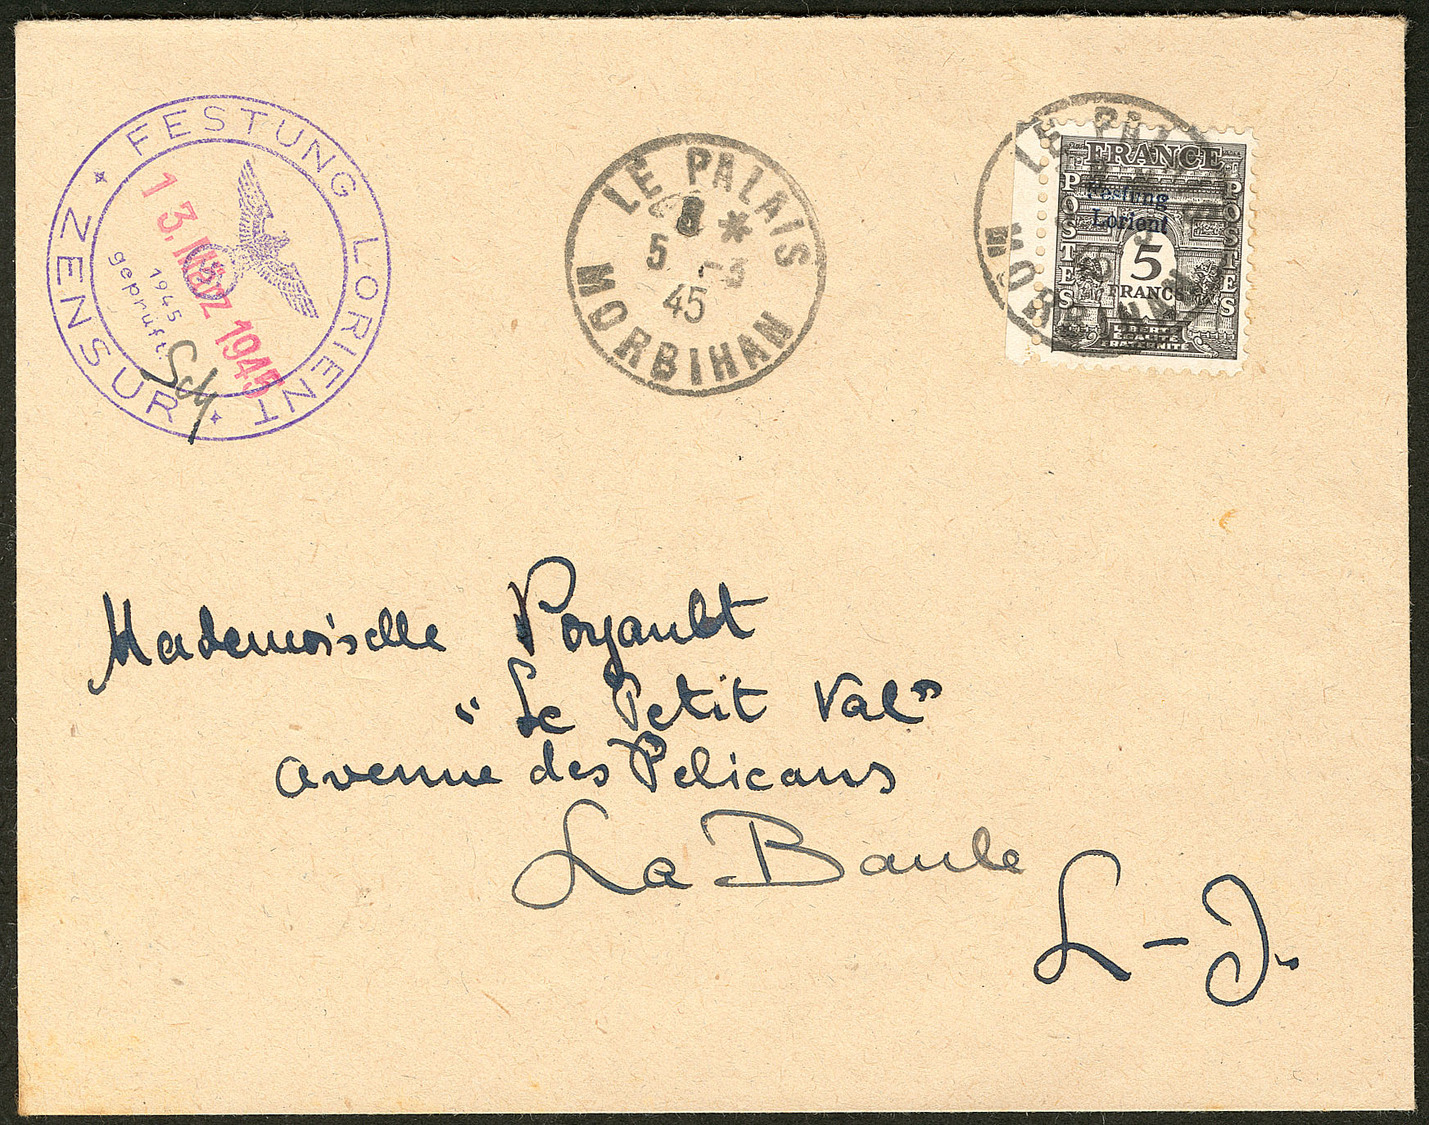 FESTUNG LORIENT
ZENSUR
13. März 1945
1945
geprüft:
LE PALAIS
8 *
5 -3
45
MORBIHAN
LE PALAIS
MORBIHAN
FRANCE
POSTES
POSTES
Festung
Lorient
5
FRANCS
LIBERTÉ
ÉGALITÉ
FRATERNITÉ
Mademoiselle Poyault
"Le Petit Val"
avenue des Pelicans
La Baule
L-I.